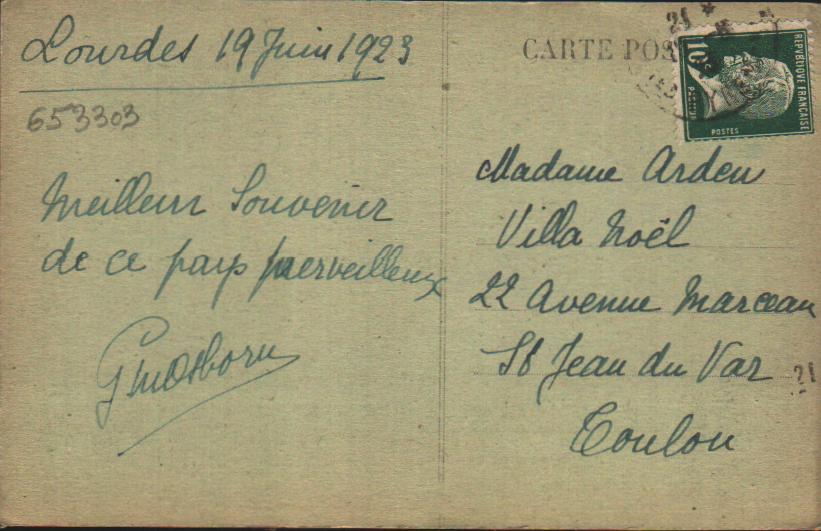 Lourdes 19 Juin 1923
653303
Meilleur Souvenir
de ce pays merveilleux
GmOsborn
CARTE POS
21
10c
REPUBLIQUE FRANÇAISE
PASTEUR
POSTES
Madame Arden
Villa Noël
22 Avenue Marceau
St Jean du Var
21
Toulon